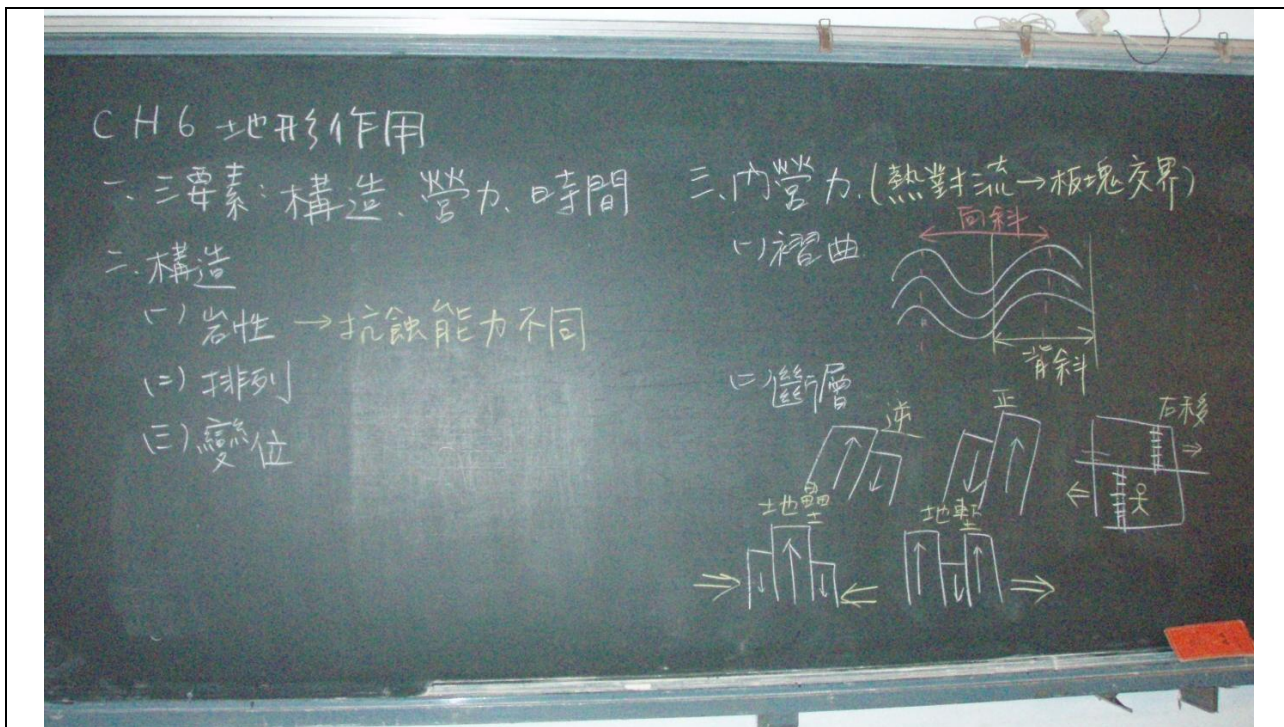 CH6 地形作用
一、三要素:構造、營力、時間
二、構造
(一)岩性 →抗蝕能力不同
(二)排列
(三)變位
三、內營力.(熱對流→板塊交界)
(一)褶曲
向斜
背斜
(二)斷層
逆
正
右移
地壘
地塹